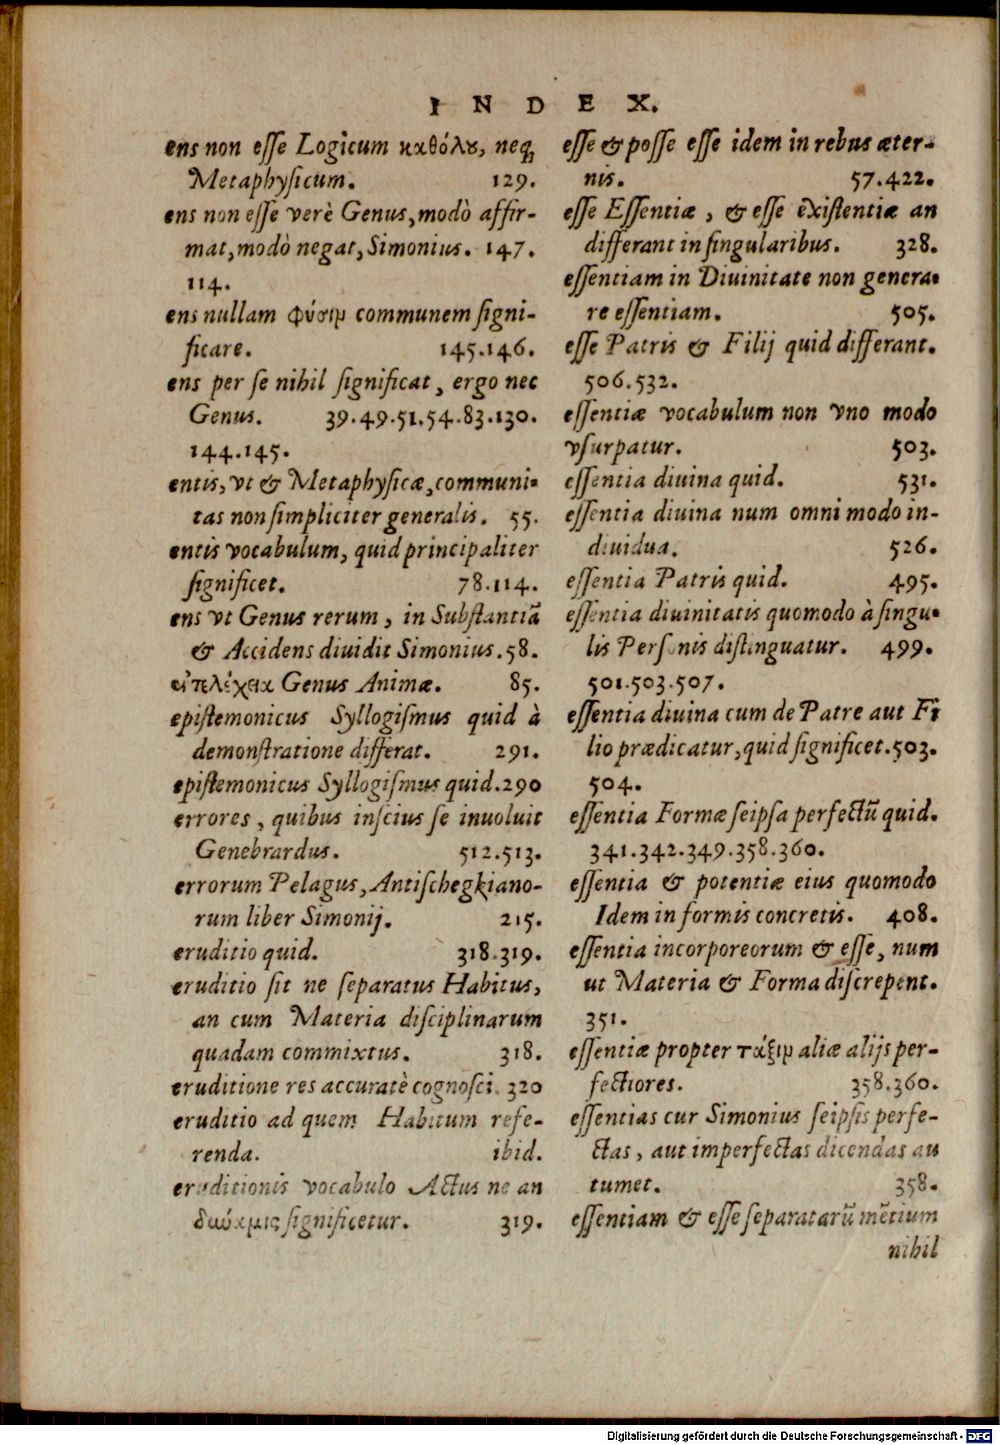 INDEX.
ens non esse Logicum καθόλȣ, neq́;
Metaphysicum. 129.
ens non esse verè Genus, modò affir-
mat, modò negat, Simonius. 147.
114.
ens nullam φύσιμ communem signi-
ficare. 145.146.
ens per se nihil significat, ergo nec
Genus. 39.49.51.54.83.130.
144.145.
entis, vt & Metaphysicæ, communi-
tas non simpliciter generalis. 55.
entis vocabulum, quid principaliter
significet. 78.114.
ens vt Genus rerum, in Substantiā
& Accidens diuidit Simonius. 58.
ἐντελέχεια Genus Animæ. 85.
epistemonicus Syllogismus quid à
demonstratione differat. 291.
epistemonicus Syllogismus quid. 290
errores, quibus inscius se inuoluit
Genebrardus. 512.513.
errorum Pelagus, Antischegkiano-
rum liber Simonij. 215.
eruditio quid. 318.319.
eruditio sit ne separatus Habitus,
an cum Materia disciplinarum
quadam commixtus. 318.
eruditione res accuratè cognosci. 320
eruditio ad quem Habitum refe-
renda. ibid.
eruditionis vocabulo Actus ne an
δύναμις significetur. 319.
esse & posse esse idem in rebus æter-
nis. 57.422.
esse Essentiæ, & esse existentiæ an
differant in singularibus. 328.
essentiam in Diuinitate non genera-
re essentiam. 505.
esse Patris & Filij quid differant.
506.532.
essentiæ vocabulum non vno modo
vsurpatur. 503.
essentia diuina quid. 531.
essentia diuina num omni modo in-
diuidua. 526.
essentia Patris quid. 495.
essentia diuinitatis quomodo à singu-
lis Personis distinguatur. 499.
501.503.507.
essentia diuina cum de Patre aut Fi
lio prædicatur, quid significet. 503.
504.
essentia Formæ seipsa perfectū quid.
341.342.349.358.360.
essentia & potentiæ eius quomodo
Idem in formis concretis. 408.
essentia incorporeorum & esse, num
ut Materia & Forma discrepent.
351.
essentiæ propter τάξιμ aliæ alijs per-
fectiores. 358.360.
essentias cur Simonius seipsis perfe-
ctas, aut imperfectas dicendas au
tumet. 358.
essentiam & esse separatarū mētium
nihil
Digitalisierung gefördert durch die Deutsche Forschungsgemeinschaft - DFG